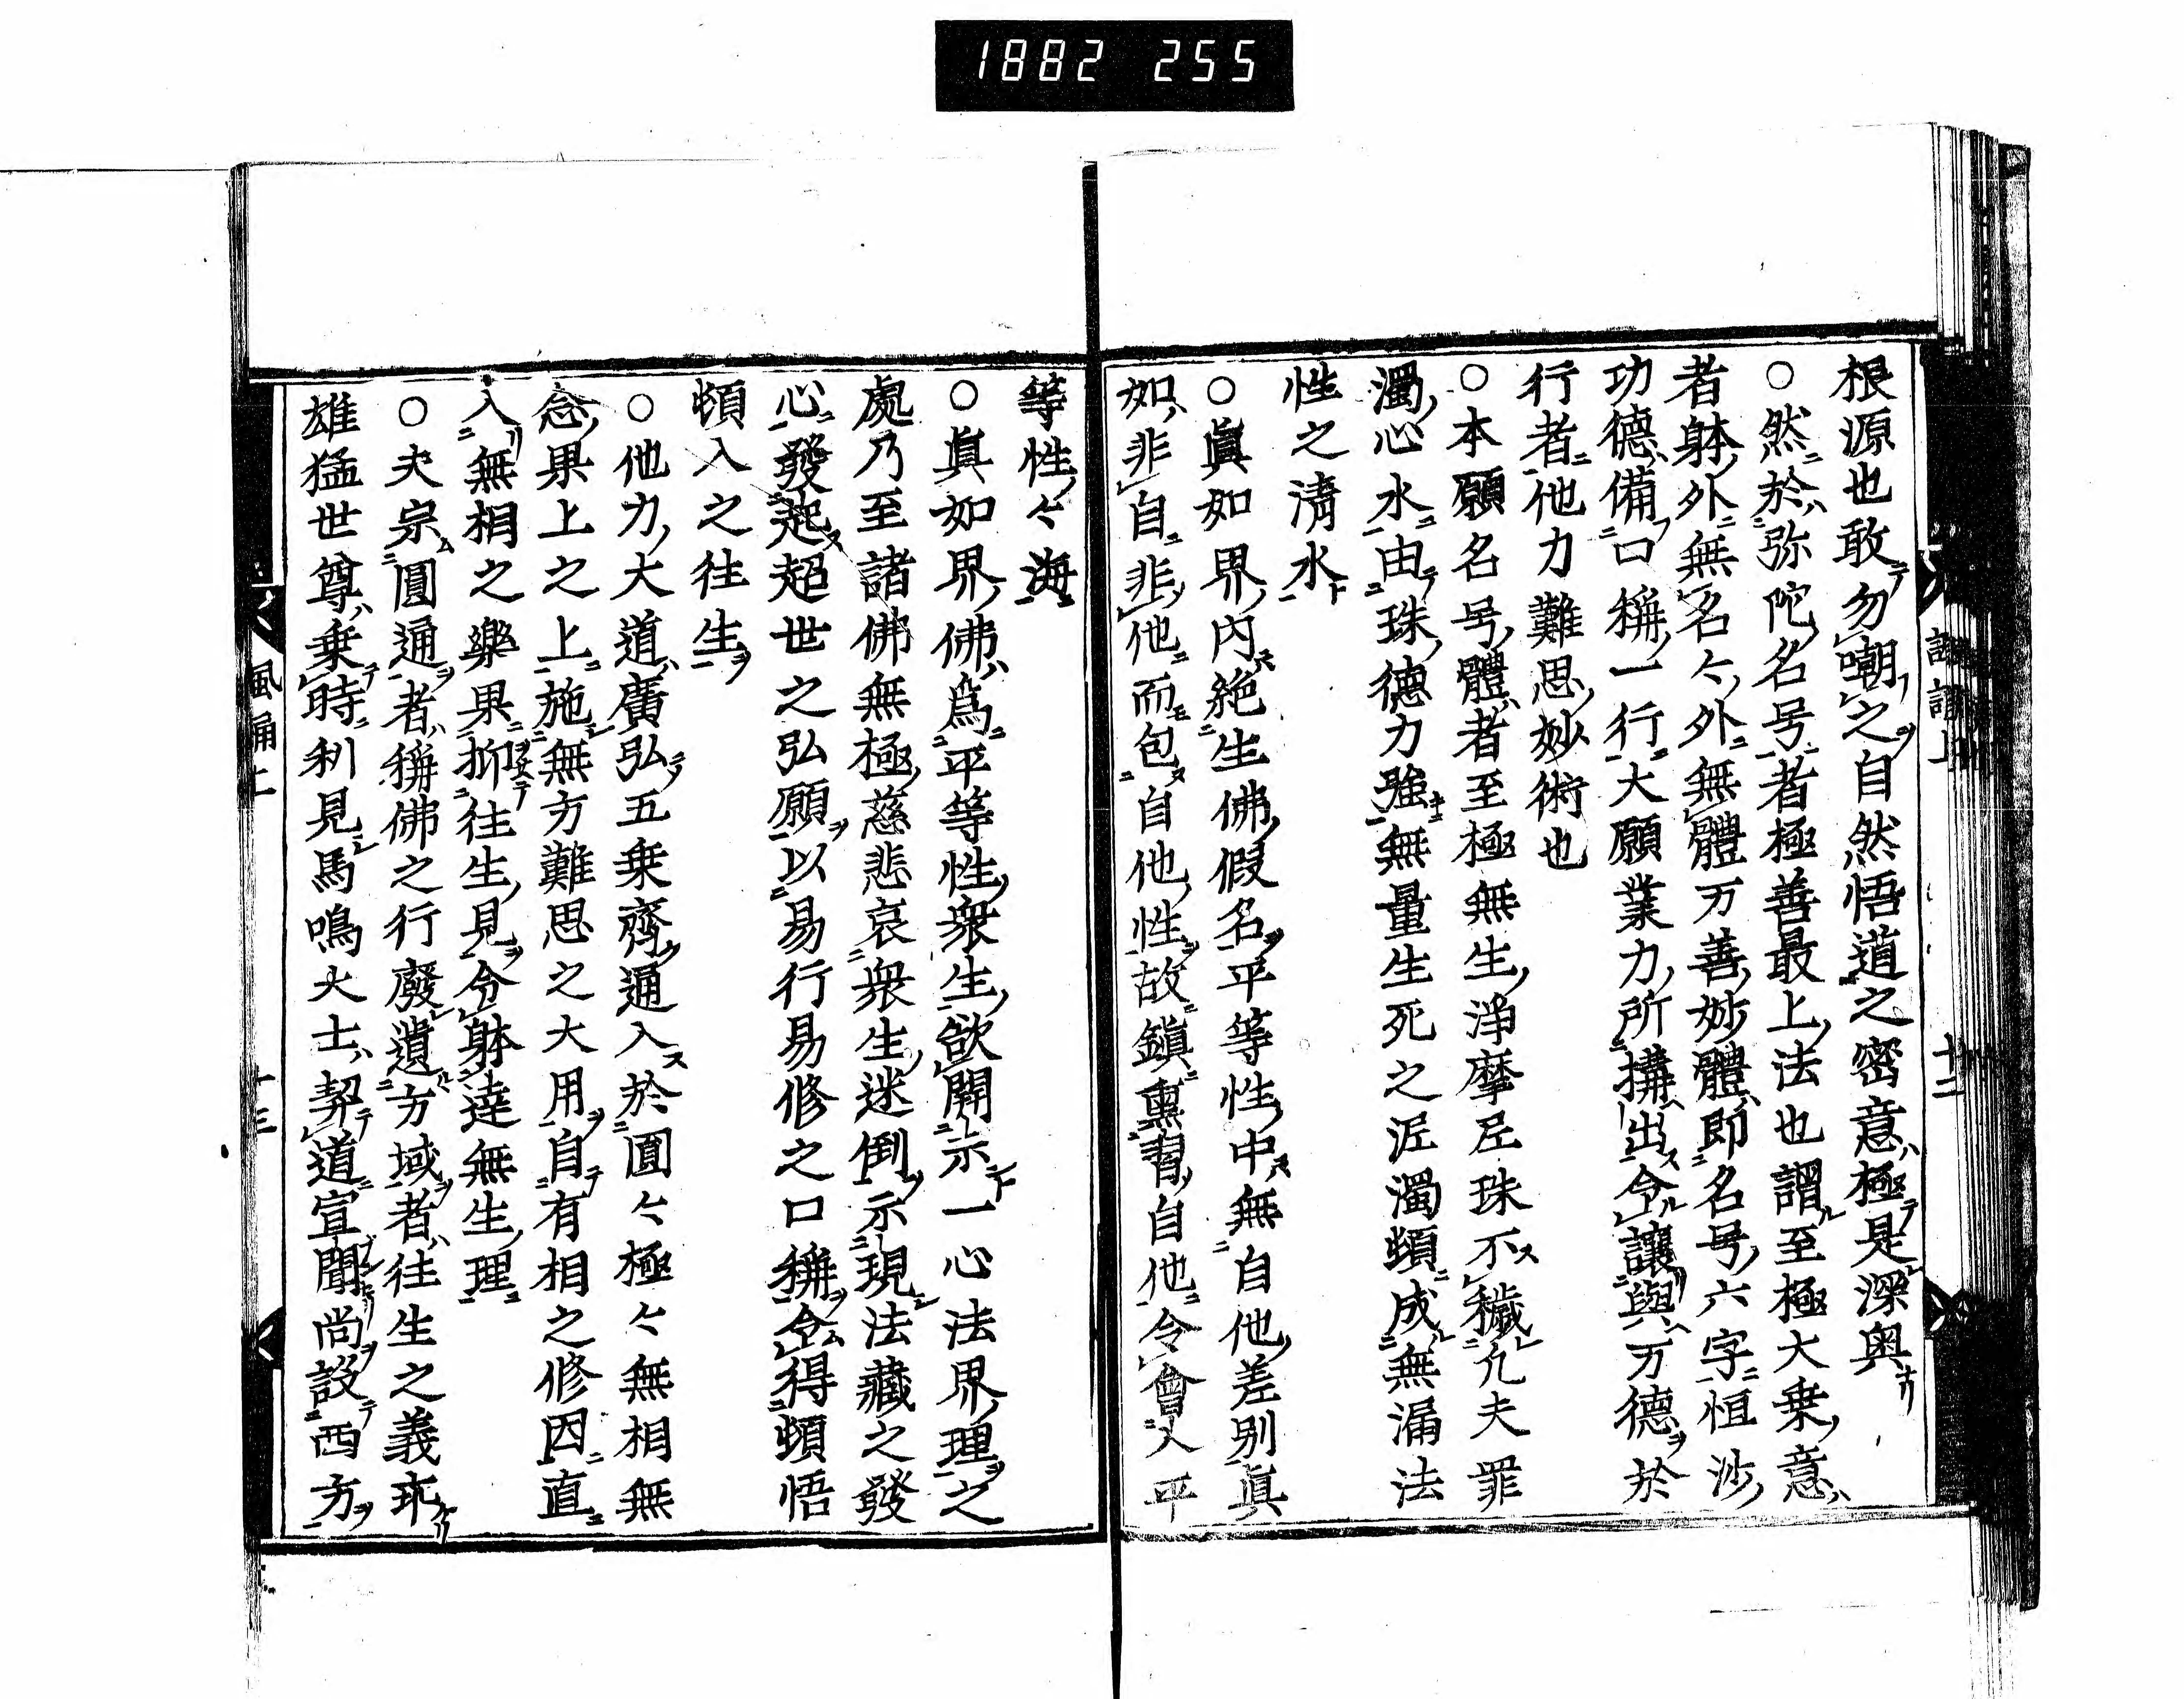 1882 255
根源也敢勿嘲之自然悟道之密意極是深奥
○然於弥陀名号者極善最上法也謂至極大乗意
者躰外無名々外無體万善妙體即名号六字恒沙
功德備口稱一行大願業力所搆出令讓與万德於
行者他力難思妙術也
○本願名号體者至極無生淨摩尼珠不穢凢夫罪
濁心水由珠德力強無量生死之泥濁頓成無漏法
性之清水
○眞如界内絶生佛假名平等性中無自他差別眞
如非自非他而包自他性故鎭熏習自他令會入平
等性々海
○眞如界佛爲平等性衆生欲開示一心法界理之
處乃至諸佛無極慈悲哀衆生迷倒示現法藏之發
心發起超世之弘願以易行易修之口稱令得頓悟
頓入之往生
○他力大道廣弘五乗齊通入於圓々極々無相無
念果上之上施無方難思之大用自有相之修因直
入無相之樂果抑往生見令躰達無生理
○夫宗圓通者稱佛之行廢遺方域者往生之義玩
雄猛世尊乗時利見馬鳴大士契道宣闡尚設西方
風誦上